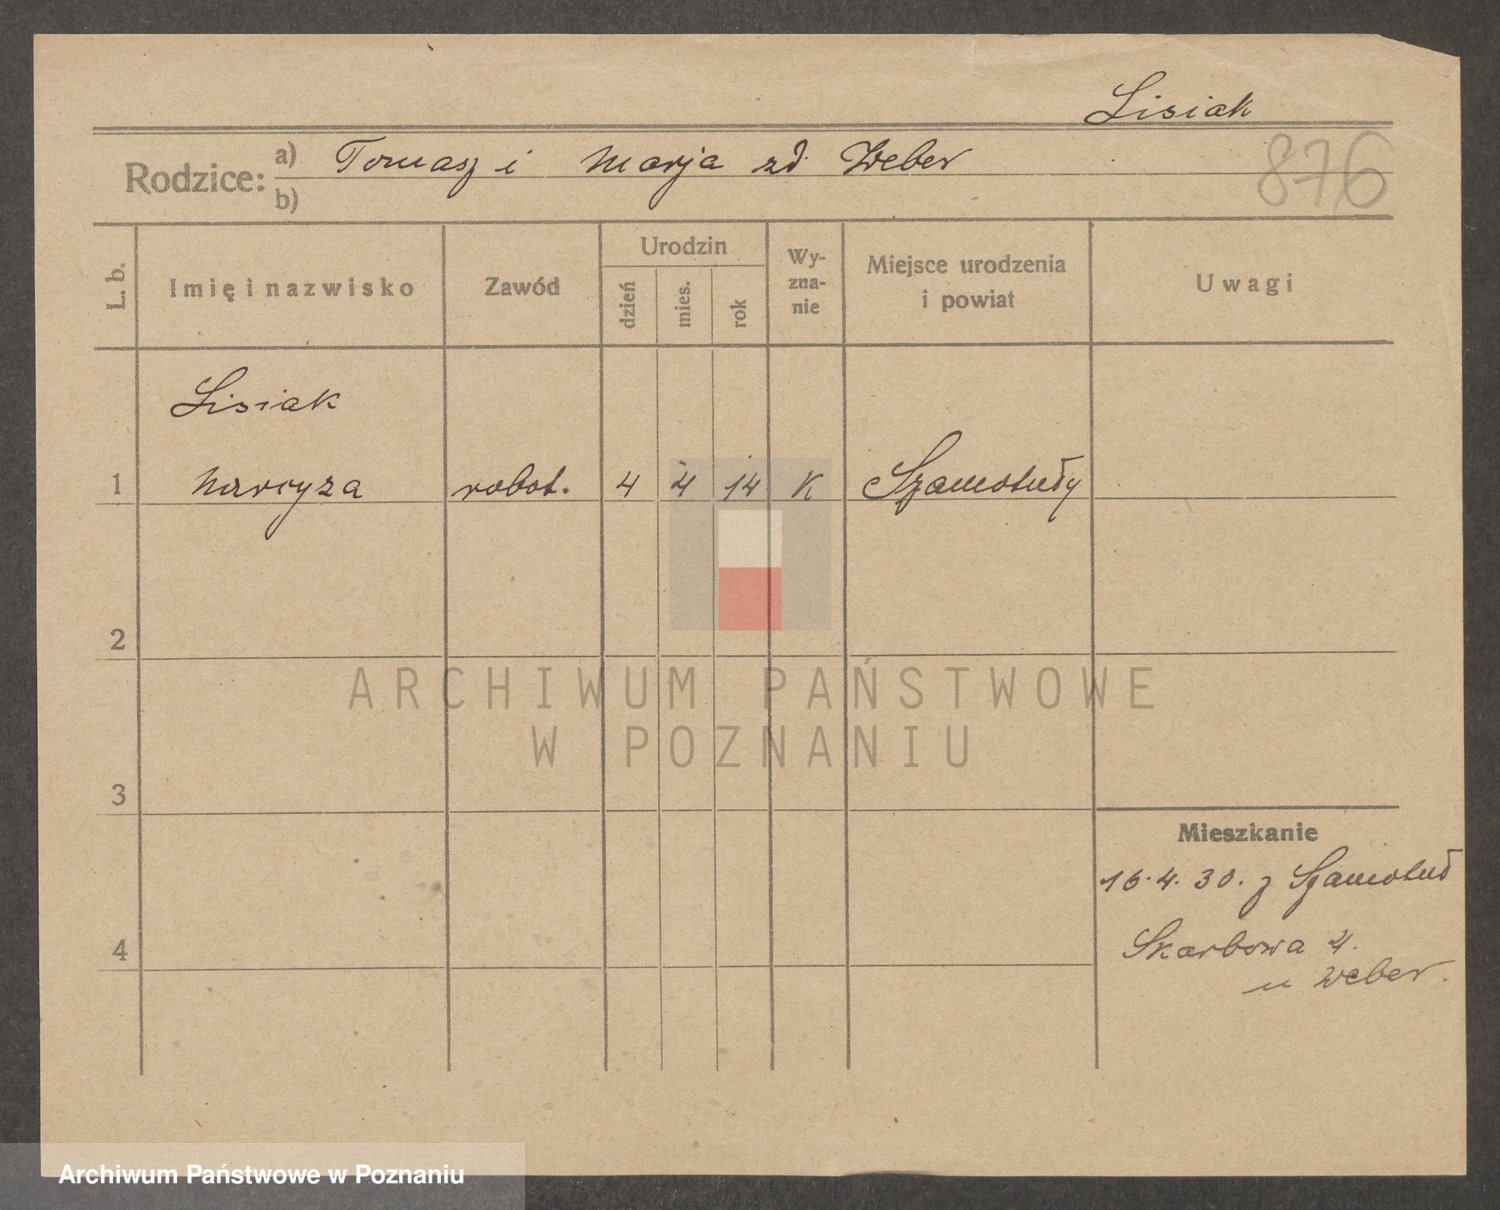 Lisiak
Rodzice: a) Tomasz i Marja zd. Weber
b)
876
L. b.
Imię i nazwisko
Zawód
Urodzin
dzień
mies.
rok
Wy-
zna-
nie
Miejsce urodzenia
i powiat
Uwagi
Lisiak
1 Narcyza robot. 4 4 14 K Szamotuły
2
ARCHIWUM PAŃSTWOWE
W POZNANIU
3
Mieszkanie
16.4.30. z Szamotuł
4
Skarbowa 4.
u Weber.
Archiwum Państwowe w Poznaniu